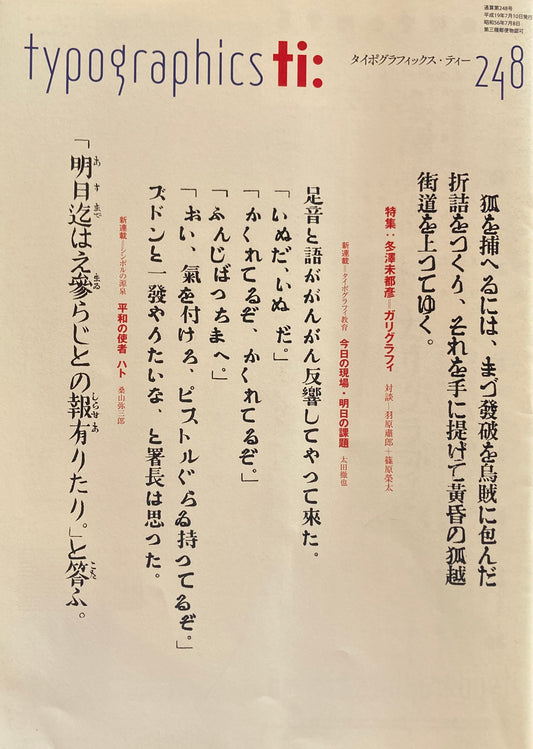 通算第248号
平成19年7月10日発行
昭和56年7月8日
第三種郵便物認可
typographics ti:
タイポグラフィックス・ティー
248
狐を捕へるには、まづ發破を烏賊に包んだ
折詰をつくり、それを手に提げて黄昏の狐越
街道を上つてゆく。
特集：冬澤未都彦＝ガリグラフィ 対談＝羽原肅郎＋篠原榮太
新連載＝タイポグラフィ教育 今日の現場・明日の課題 太田徹也
足音と語ががんがん反響してやって來た。
「いぬだ、いぬ だ。」
「かくれてるぞ、かくれてるぞ。」
「ふんじばつちまへ。」
「おい、氣を付けろ、ピストルぐらゐ持つてるぞ。」
ズドンと一發やりたいな、と署長は思つた。
新連載＝シンボルの源泉 平和の使者 ハト 桑山弥三郎
「明日迄はえ參らじとの報有りたり。」と答ふ。